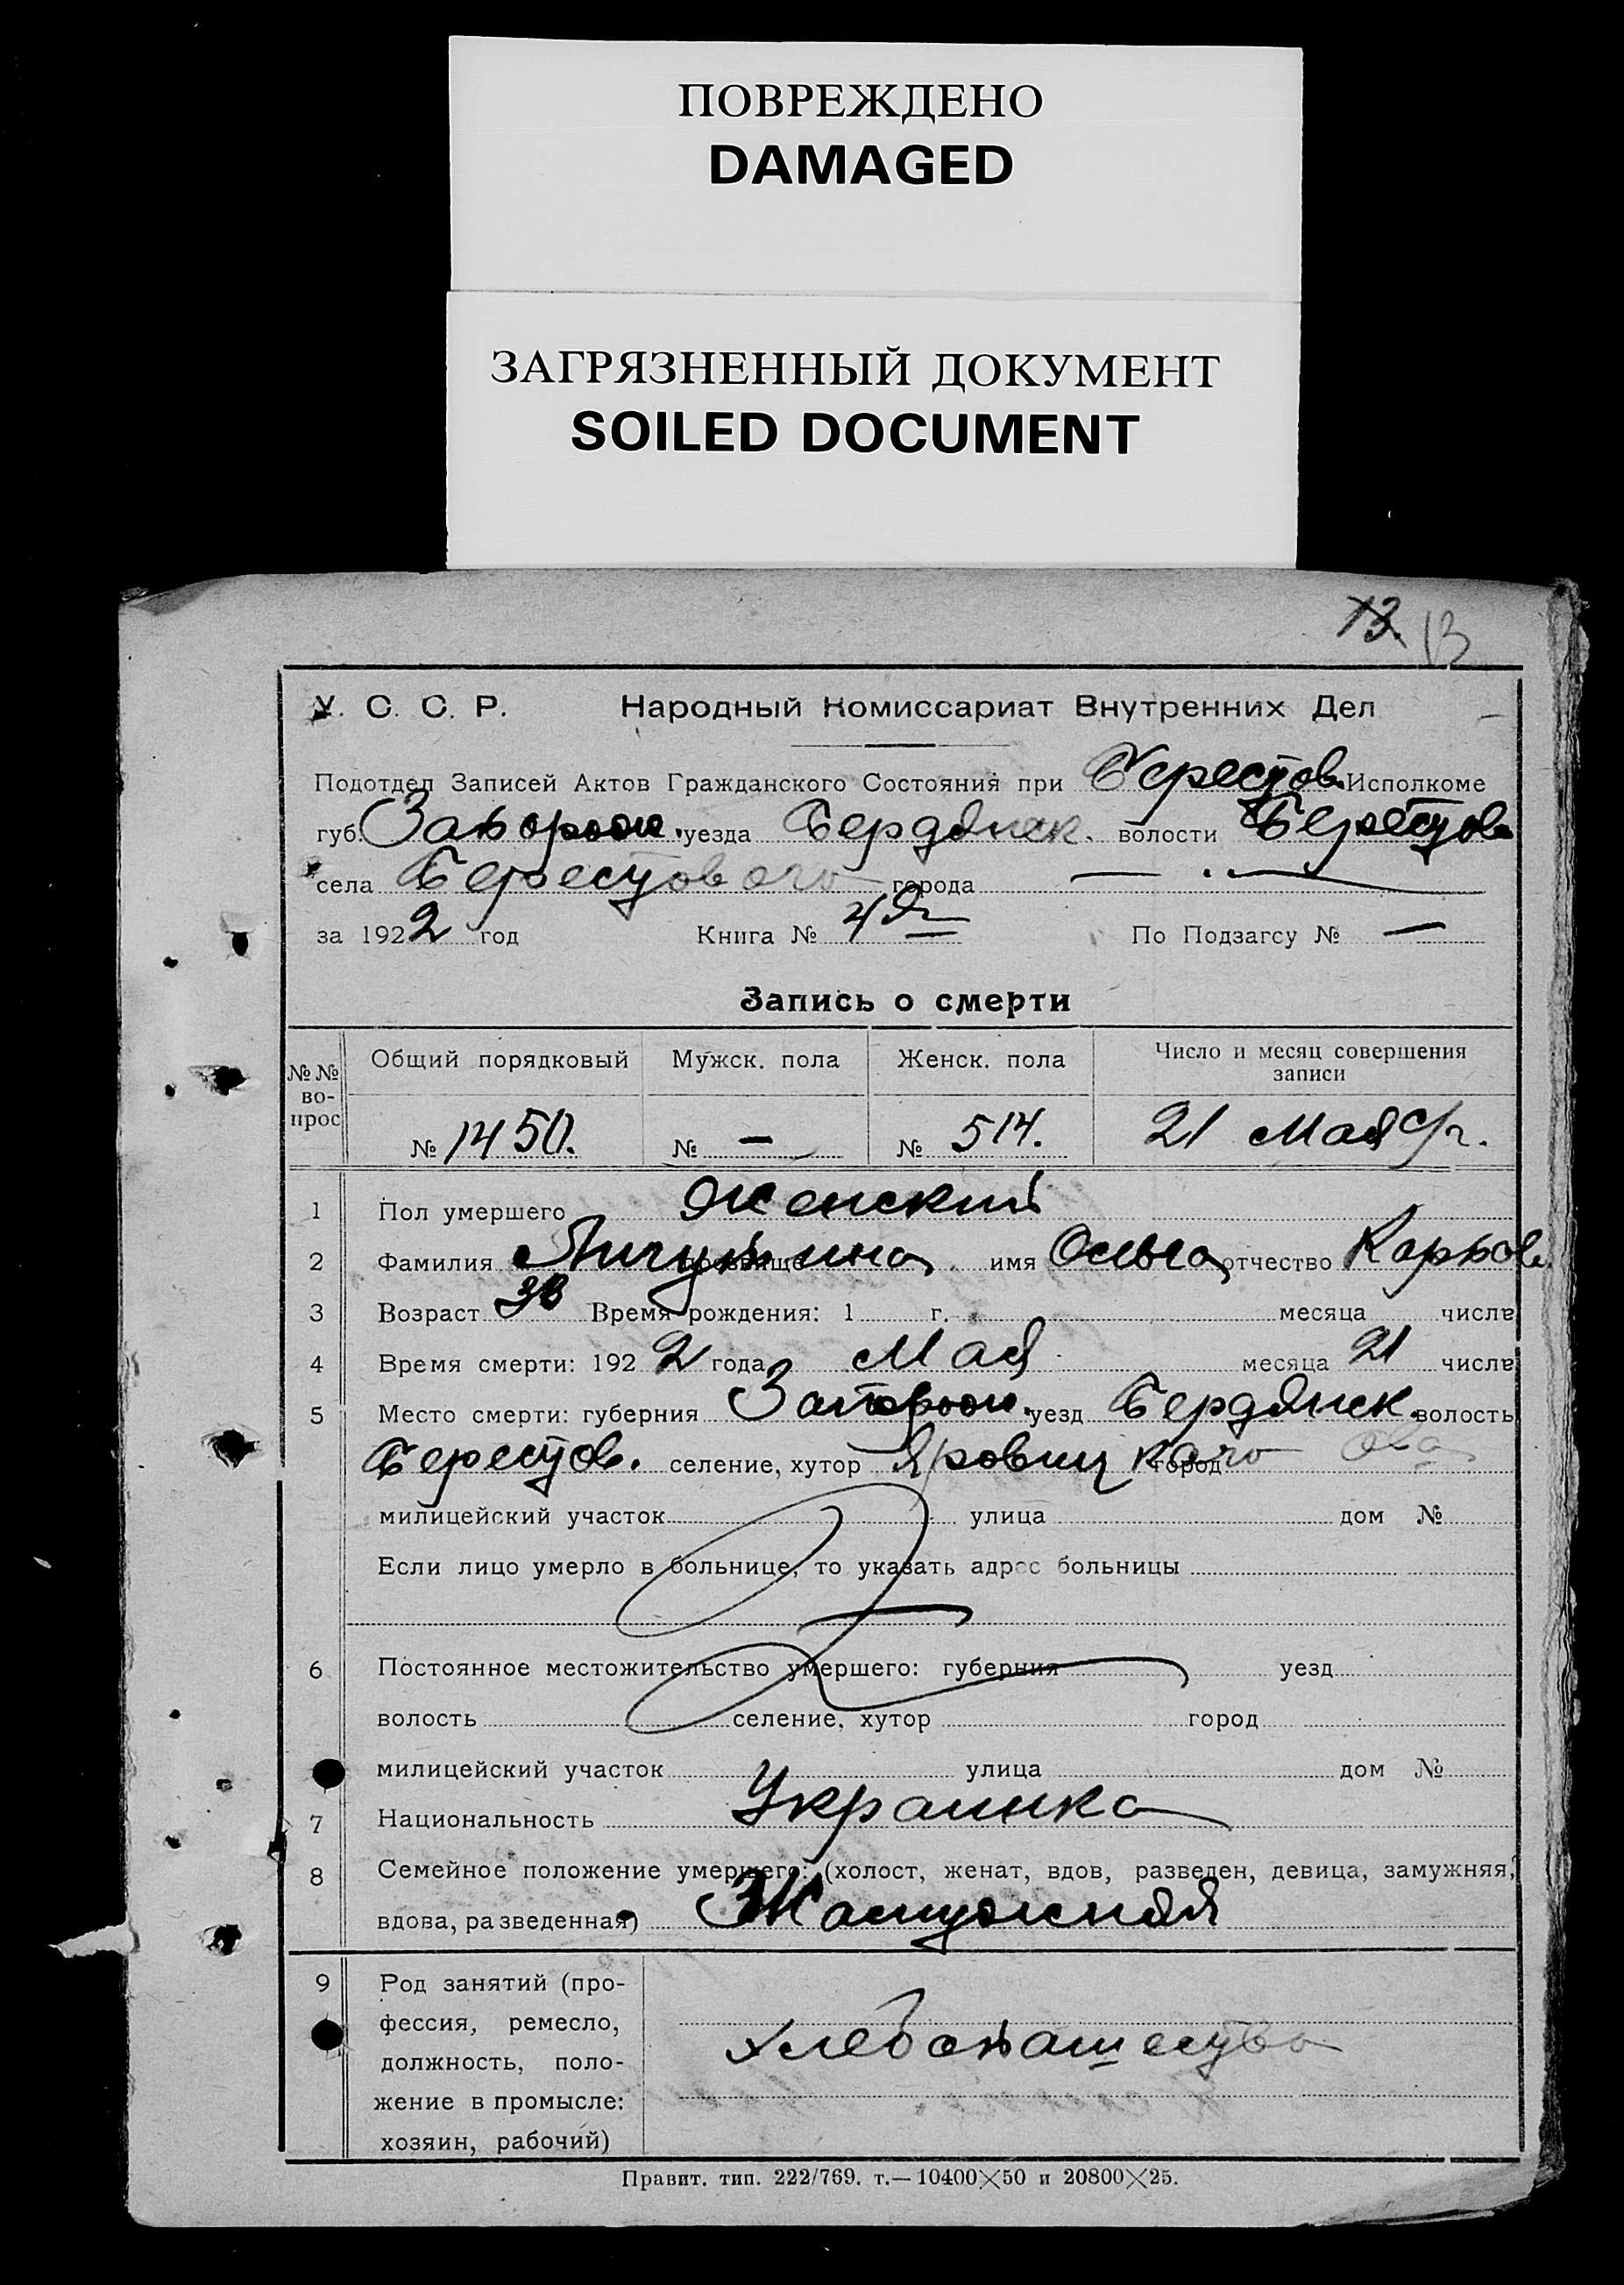 ПОВРЕЖДЕНО
DAMAGED
ЗАГРЯЗНЕННЫЙ ДОКУМЕНТ
SOILED DOCUMENT
13. 13
У. С. С. Р. Народный Комиссариат Внутренних Дел
Подотдел Записей Актов Гражданского Состояния при Берестов. Исполкоме
губ. Запорож. уезда Бердянск. волости Берестов
села Берестового города —
за 1922 год Книга № 4я По Подзагсу № —
Запись о смерти
№№ вопрос Общий порядковый Мужск. пола Женск. пола Число и месяц совершения записи
№ 1450. № — № 514. 21 Мая с/г.
1 Пол умершего Женский
2 Фамилия прозвище имя Ольга отчество Карпов.
3 Возраст Время рождения: 1 г. месяца числа
4 Время смерти: 1922 года Мая месяца 21 числа
5 Место смерти: губерния Запорож. уезд Бердянск. волость
Берестов. селение, хутор Яровицкаго город
милицейский участок улица дом №
Если лицо умерло в больнице, то указать адрес больницы
6 Постоянное местожительство умершего: губерния уезд
волость селение, хутор город
милицейский участок улица дом №
7 Национальность Украинка
8 Семейное положение умершего: (холост, женат, вдов, разведен, девица, замужняя,
вдова, разведенная) Замужняя
9 Род занятий (про-
фессия, ремесло,
должность, поло- Хлебопашество
жение в промысле:
хозяин, рабочий)
Правит. тип. 222/769. т.—10400×50 и 20800×25.